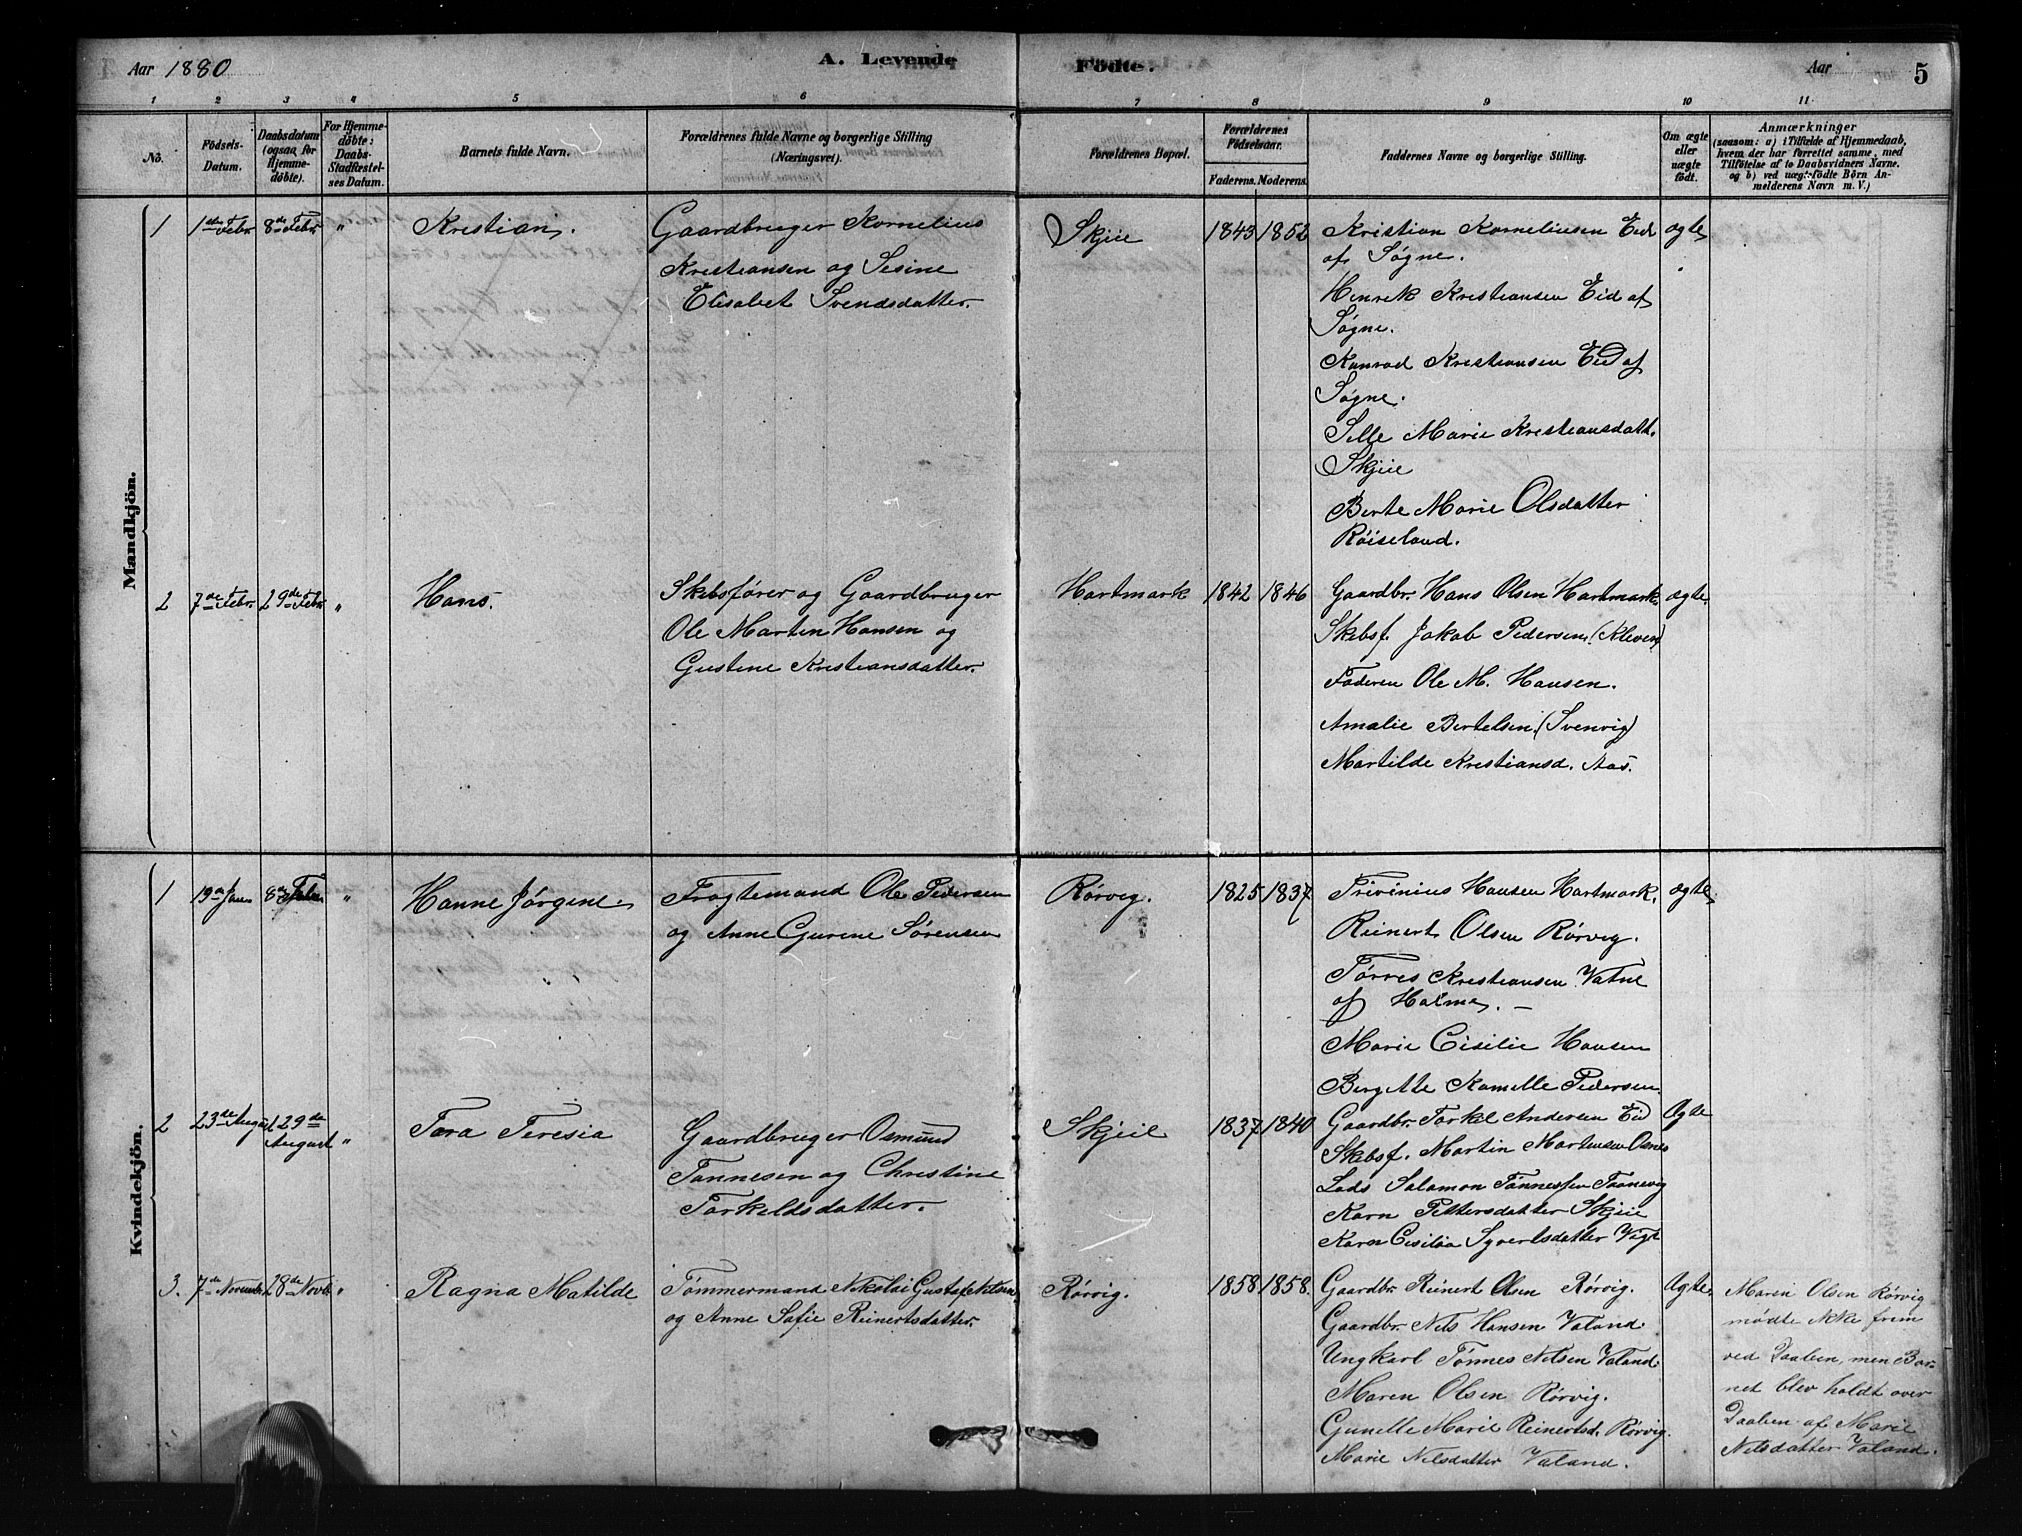 Aar 1880
A. Levende
Födte.
Aar
5
1 2 3 4 5 6 7 8 9 10 11
No.
Födsels-
Datum.
Daabsdatum
(ogsaa for
Hjemme-
döbte).
For Hjemme-
döbte:
Daabs-
Stadfæstel-
ses Datum.
Barnets fulde Navn.
Forældrenes fulde Navne og borgerlige Stilling
(Næringsvei).
Forældrenes Bopæl.
Forældrenes
Födselsaar.
Faderens. Moderens.
Faddernes Navne og borgerlige Stilling.
Om ægte
eller
uægte
födt.
Anmærkninger
(saasom: a) i Tilfælde af Hjemmedaab,
hvem der har forrettet samme, med
Tilföielse af to Daabsvidners Navne,
og b) ved uægte födte Börn An-
melderens Navn m. V.)
Mandkjön.
1
1ste Febr.
8de Febr.
"
Kristian.
Gaardbruger Kornelius
Kristiansen og Sesine
Elisabet Svendsdatter.
Skjeie
1843 1852
Kristian Korneliusen Eid
af Søgne.
Henrik Kristiansen Eid af
Søgne.
Konrad Kristiansen Eid af
Søgne.
Sille Marie Kristiansdatt.
Skjeie
Berte Marie Olsdatter
Røiseland.
ægte
2
7de Febr.
29de Febr.
"
Hans.
Skibsfører og Gaardbruger
Ole Martin Hansen og
Gustine Kristiansdatter.
Hartmark
1842 1846
Gaardbr. Hans Olsen Hartmark.
Skibsf. Jakob Pedersen (Kleven)
Faderen Ole M. Hansen.
Amalie Bertelsen (Svenvig)
Martilde Kristiansd. Aas.
ægte.
Kvindekjön.
1
19de Jan.
8de Febr.
"
Hanne Jørgine.
Fragtemand Ole Pedersen
og Anne Gurine Sørensen
Rørvig.
1825 1837
Trivinius Hansen Hartmark.
Reinert Olsen Rørvig.
Tørres Kristiansen Vatne
af Halmes. –
Marie Cisilie Hansen
Bergitte Kamille Pedersen.
ægte
2
23de August
29de
August
"
Tora Teresia
Gaardbruger Osmund
Tønnesen og Christine
Torkeldsdatter.
Skjeie
1837 1840
Gaardbr. Torkel Andersen Eid
Skibsf. Martin Martinsen Osnes
Lods Salomon Tønnessen Taanevig
Karn Pettersdatter Skjeie
Karn Cisilia Syvertsdatter
Ægte
3.
7de November
28de Novb.
"
Ragna Matilde
Tømmermand Nikolai Gustaf Nilsen
og Anne Sofie Reinertsdatter.
Rørvig.
1858 1858.
Gaardbr. Reinert Olsen Rørvig.
Gaardbr. Nils Hansen Valand.
Ungkarl Tønnes Nilsen Valand.
Maren Olsen Rørvig.
Gunelle Marie Reinertsd. Rørvig.
Marie Nilsdatter Valand.
Ægte.
Maren Olsen Rørvig
mødte ikke frem
ved Daaben, men Bar-
net blev holdt over
Daaben af Marie
Nilsdatter Valand.